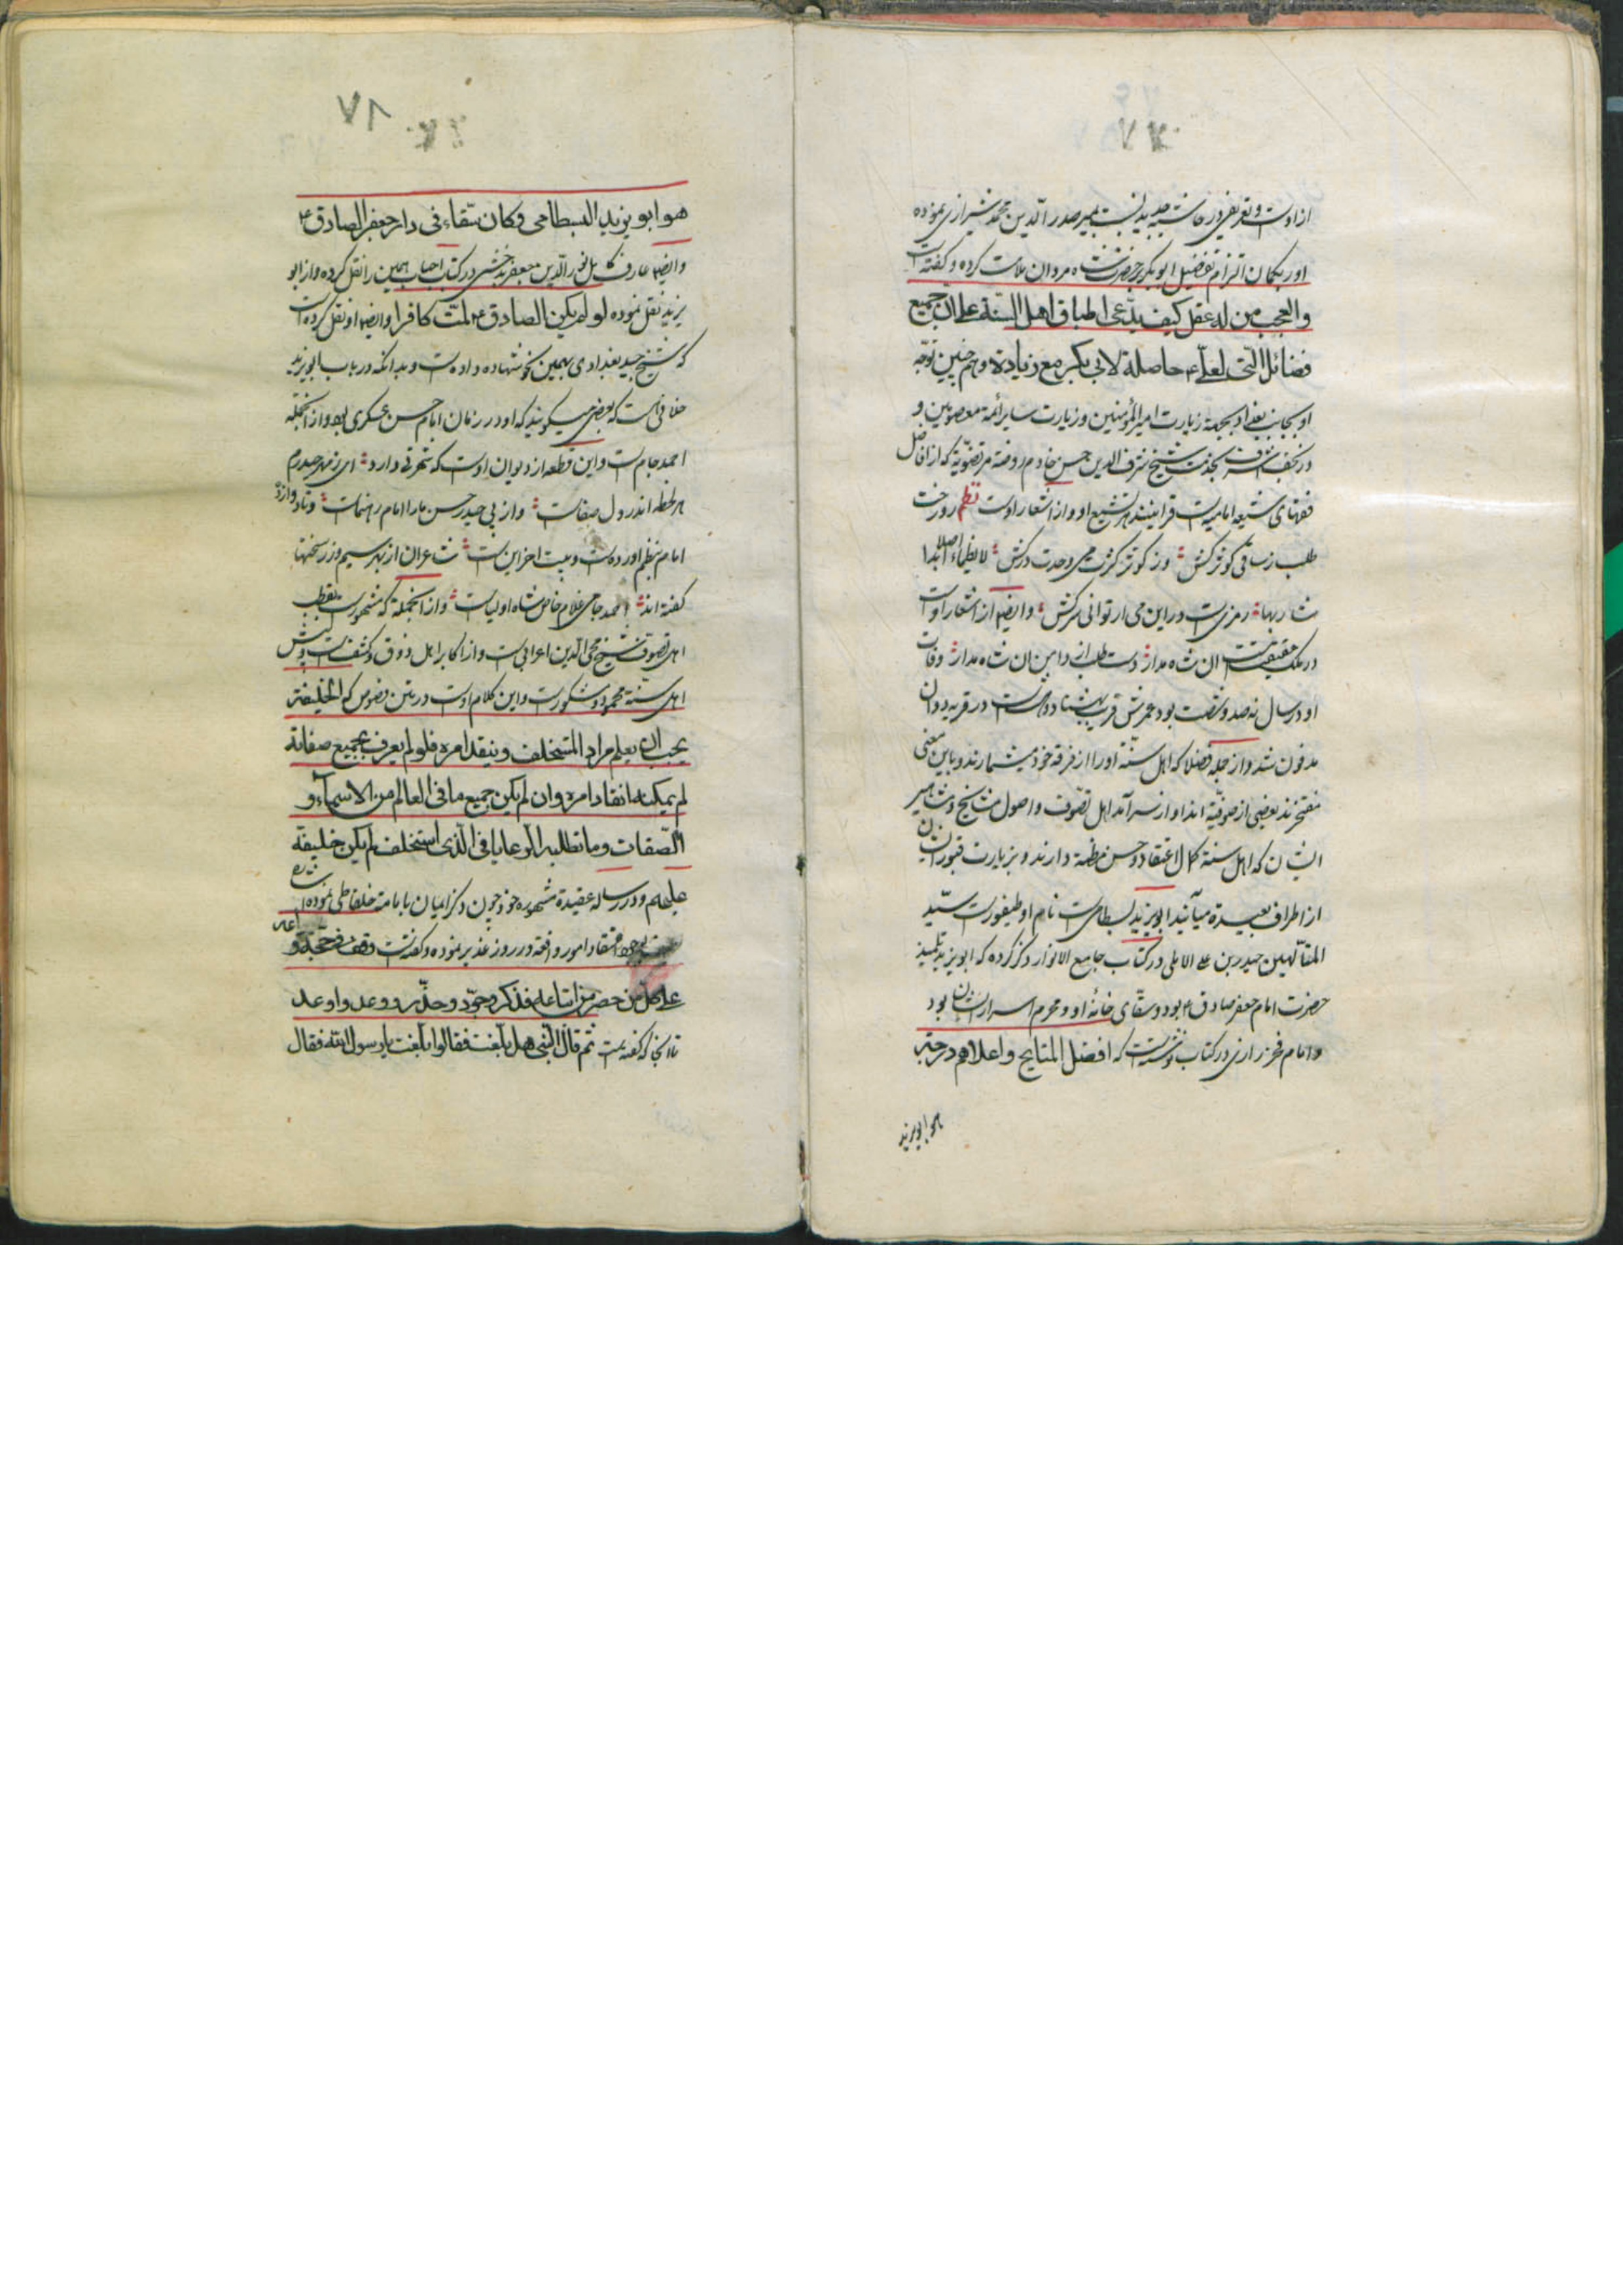 ازاوست و تعریض در حاشیه جدید نسبت بمیر صدر الدین محمد شیرازی نموده
او را بکمان التزام تفضیل ابو بکر بر حضرت شاه مردان ملامت کرده و کفته است
والعجب من له عقل کیف یدّعی اطباق اهل السنة علی ان جمیع
فضائل التی لعلی ع حاصلة لابی بکر مع زیادة و هم چنین توجّه
او بجانب بغداد بجهة زیارت امیر المؤمنین و زیارت سایر ائمه معصومین و
در نجف اشرف بخدمت شیخ شرف الدین حسن خادم روضه مرتضویّه که از افاضل
فقهای شیعه امامیه است قراینند بر تشیع او و از اشعار اوست نظم رو رخت
طلب ز ساقی کوثر کش وز کوثر کثرت می وحدت درکش لا یظماء اصلا ابدا
شاربها رمزیست در این می ار توانی سرکش و ایضا از اشعار اوست
در ملک حقیقت ان شاه مدار دست طلب از دامن ان شاه مدار وفات
او در سال نه صد و شصت بود عمرش قریب بهشتاد و در قریه دوان
مدفون شد و از جمله فضلا که اهل سنّة او را از فرقه خود میشمارند و باین معنی
مفتخرند بعضی از صوفیّه اند او از سرآمد اهل تصّوف و اصول مشایخ و مشاهیر
ایشان که اهل سنة کمال اعتقاد و حسن مظنه دارند و بزیارت قبور ایشان
از اطراف بعیدة میآیند ابو یزید بسطامی است نام او طیفور است سیّد
المتألّهین حیدر بن علی الاملی در کتاب جامع الانوار ذکر کرده که ابو یزید تلمیذ
حضرت امام جعفر صادق ع بود و سقّای خانه او و محرم اسرار ایشان بود
و امام فخر رازی در کتاب نوشته است که افضل المشایخ و اعلاهم درجة
هو ابو یزید
۸۷
هو ابو یزید البسطامی و کان سقاء فی دار جعفر الصادق ع
وایضا عارف کامل نور الدین جعفر بدخشی در کتاب احباب همین را نقل کرده و از ابو
یزید نقل نموده لو لم یکن الصادق ع لمتّ کافرا وایضا او نقل کرده است
که شیخ جنید بغدادی بهمین نحو شهاده داده است و بدانکه در باب ابو یزید
خلافی است که بعضی میکویند که او در زمان امام حسن عسکری بود و از انجمله
احمد جام است و این قطعه از دیوان اوست که شهرتی دارد ای ز مهر حیدرم
هر لحظه اندر دل صفاست و از پی حیدر حسن ما را امام رهنماست و تا دوازده
امام بنظم اورده است و بیت اخر این است شاعران از بهر سیم و زر سخنها
کفته اند احمد جامی غلام خاص شاه اولیاست و از انجمله که مشهور است بقطب
اهل تصوف شیخ محی الدین اعرابی است و از اکابر اهل ذوق و کشفست و پیش
اهل سنة محمود و مشکور است و این کلام اوست در متن فصوص که الخلیفة
یجب ان یعلم مراد المستخلف و ینفد امره فلو لم یعرف بجمیع صفاتة
لم یمکنه انفاد امره و ان لم یکن جمیع ما فی العالم من الاسمآء و
الصّفات و ما تطلبه الرعایا فی الّذی استخلف لم یکن خلیفة
علیهم و در رساله عقیدة مشهوره خود چون ذکر ایمان بامامة خلفا طی نموده اشاره
بوجوه اعتقاد امور واقعه در روز غدیر نموده و کفته است وقف فی حجّة و
علی کل من حضر من اتباعه فذکر و خوّف و حذّر و وعد و اوعد
تا انجا که کفته است ثم قال النّبی هل بلّغت فقالوا بلّغت یا رسول اللّه فقال